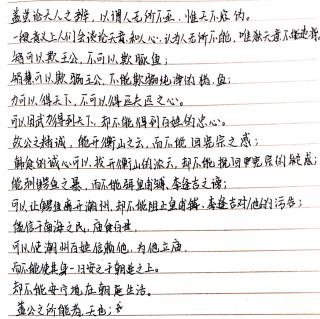 盖尝论天人之辨，以谓人无所不至，惟天不容伪。
一般意义上人们会谈论天意和人心，认为人无所不能，唯独天意不能
智可以欺王公，不可以欺豚鱼；
智慧可以欺骗王公，不能欺骗纯净的豚、鱼；
力可以得天下，不可以得匹夫匹妇之心。
可以用武力得到天下，却不能得到百姓的忠心。
故公之精诚，能开衡山之云，而不能回宪宗之惑；
韩愈的诚心可以拨开衡山的浓云，却不能挽回宪宗的疑惑；
能驯鳄鱼之暴，而不能弭皇甫镈、李逢吉之谤；
可以让鳄鱼离开潮州，却不能阻止皇甫镈、李逢吉对他的污告；
能信于南海之民，庙食百世，
可以使潮州百姓信赖他，为他立庙，
而不能使其身一日安之于朝廷之上。
却不能安宁地在朝廷生活。
盖公之所能者，天也；